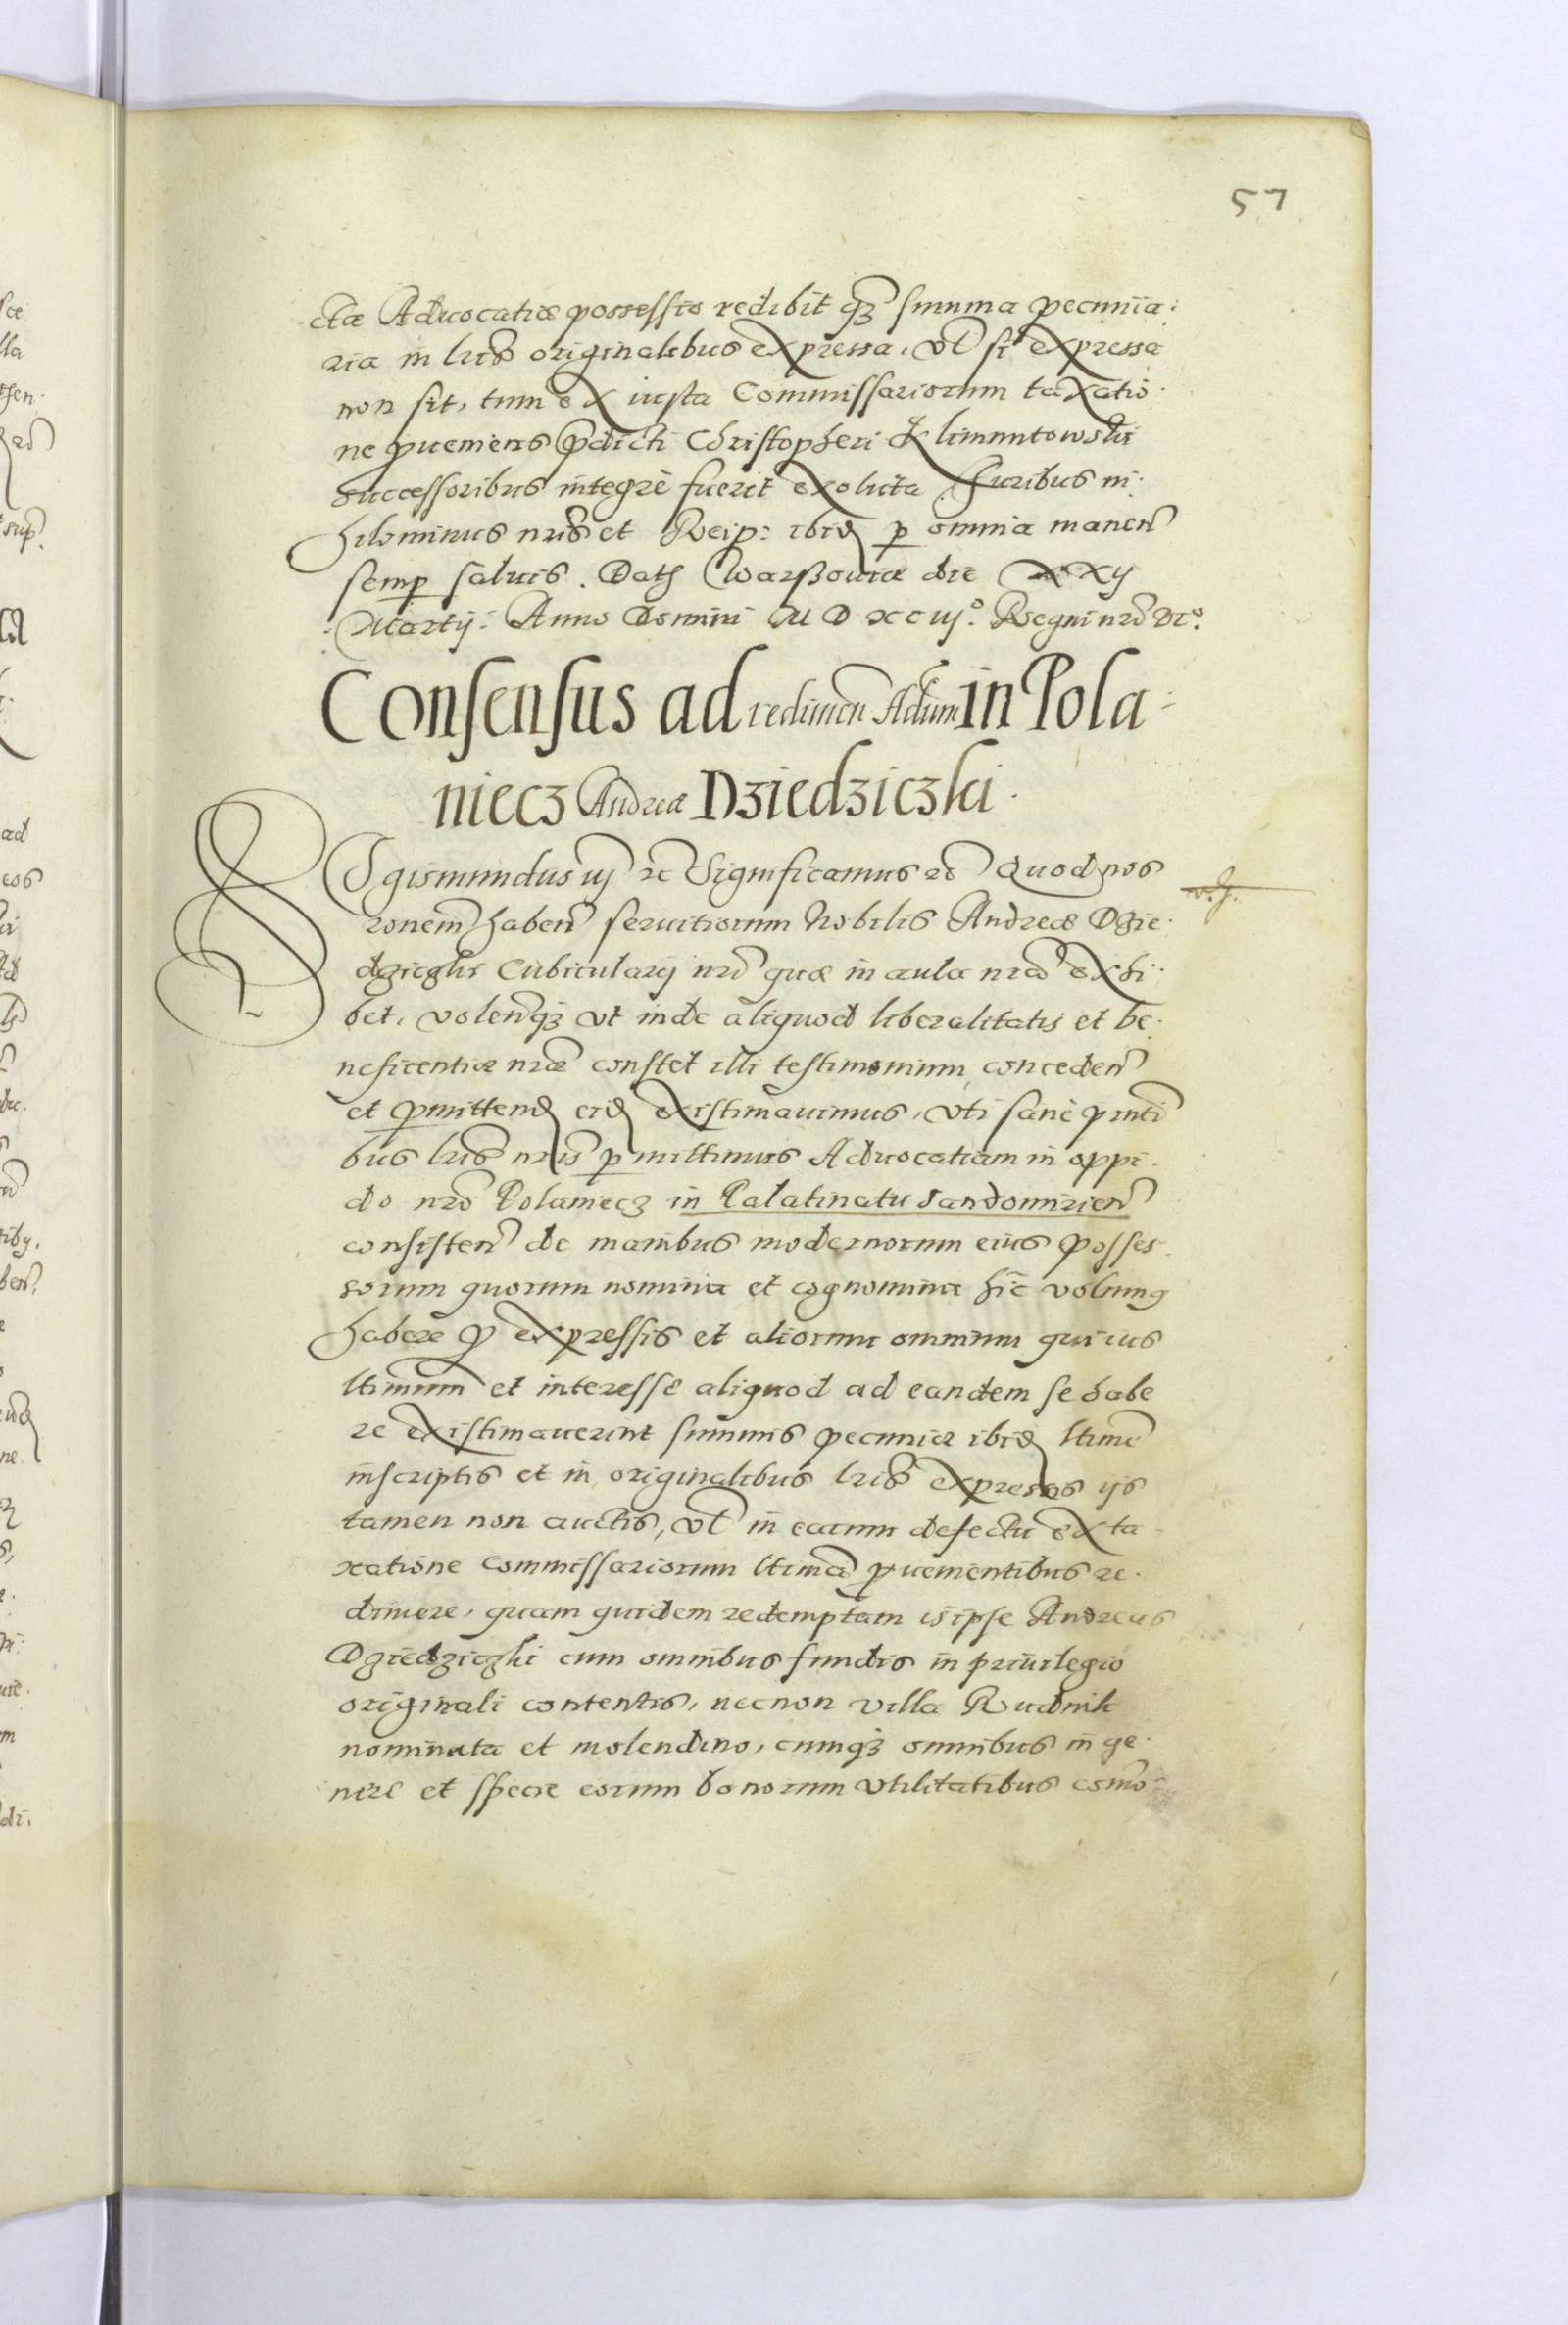 57
ctæ Aduocatiæ possessio redibit q̃ȝ summa pecunia:
ria in lr̃is originalibus expressa, vl̃ si expressa
non sit, tum ex iusta Commissariorum taxatio.
ne ꝓueniens p̃dicti Christopheri Klimuntowski
successoribus integrè fuerit exoluta. Juribus ni.
hilominus nr̃is et Reip: ibid ꝑ omnia manen̄
semꝑ saluis. Dat Warszouiæ die XXIJ
Martij. Anno Domini M D XC iij°. Regni nr̃i
Consensus ad redimen̄ Aduc̃m in Pola-
niecz Andreæ Dziedziczki.
SIgismundus iij etc Significamus etc Quod nos
rõnem haben̄ seruitiorum Nobilis Andreæ Dzie.
dziczki Cubicularij nr̃i quæ in aula nr̃a exhi.
bet, volen̄q̃ȝ vt inde aliquod liberalitatis et be.
neficentiæ nr̃æ constet illi testimonium, conceden̄
et ꝑmittend eid existimauimus, vti sanè p̃nti
bus lr̃is nr̃is ꝑmittimus Aduocatiam in oppi.
do nr̃o Polaniecz in Palatinatu Sandomirien̄
consisten̄ de manibus modernorum eius posses.
sorum quorum nomina et cognomina hîc volumꝰ
habere ꝓ expressis et aliorum omnium qui ius
ltimum et interesse aliquod ad eandem se habe
re existimauerint summis pecuniæ ibid ltimè
inscriptis et in originalibus lr̃is expressis ijs
tamen non auctis, vl̃ in earum defectu ex ta
xatione commissariorum ltima ꝓuenientibus re.
dimere, quam quidem redemptam is ipse Andreas
Dziedziczki cum omnibus fundis in priuilegio
originali contentis, necnon villa Rudnik
nominata et molendino, cumq̃ȝ omnibus in ge.
nere et specie eorum bonorum vtilitatibus com̃o